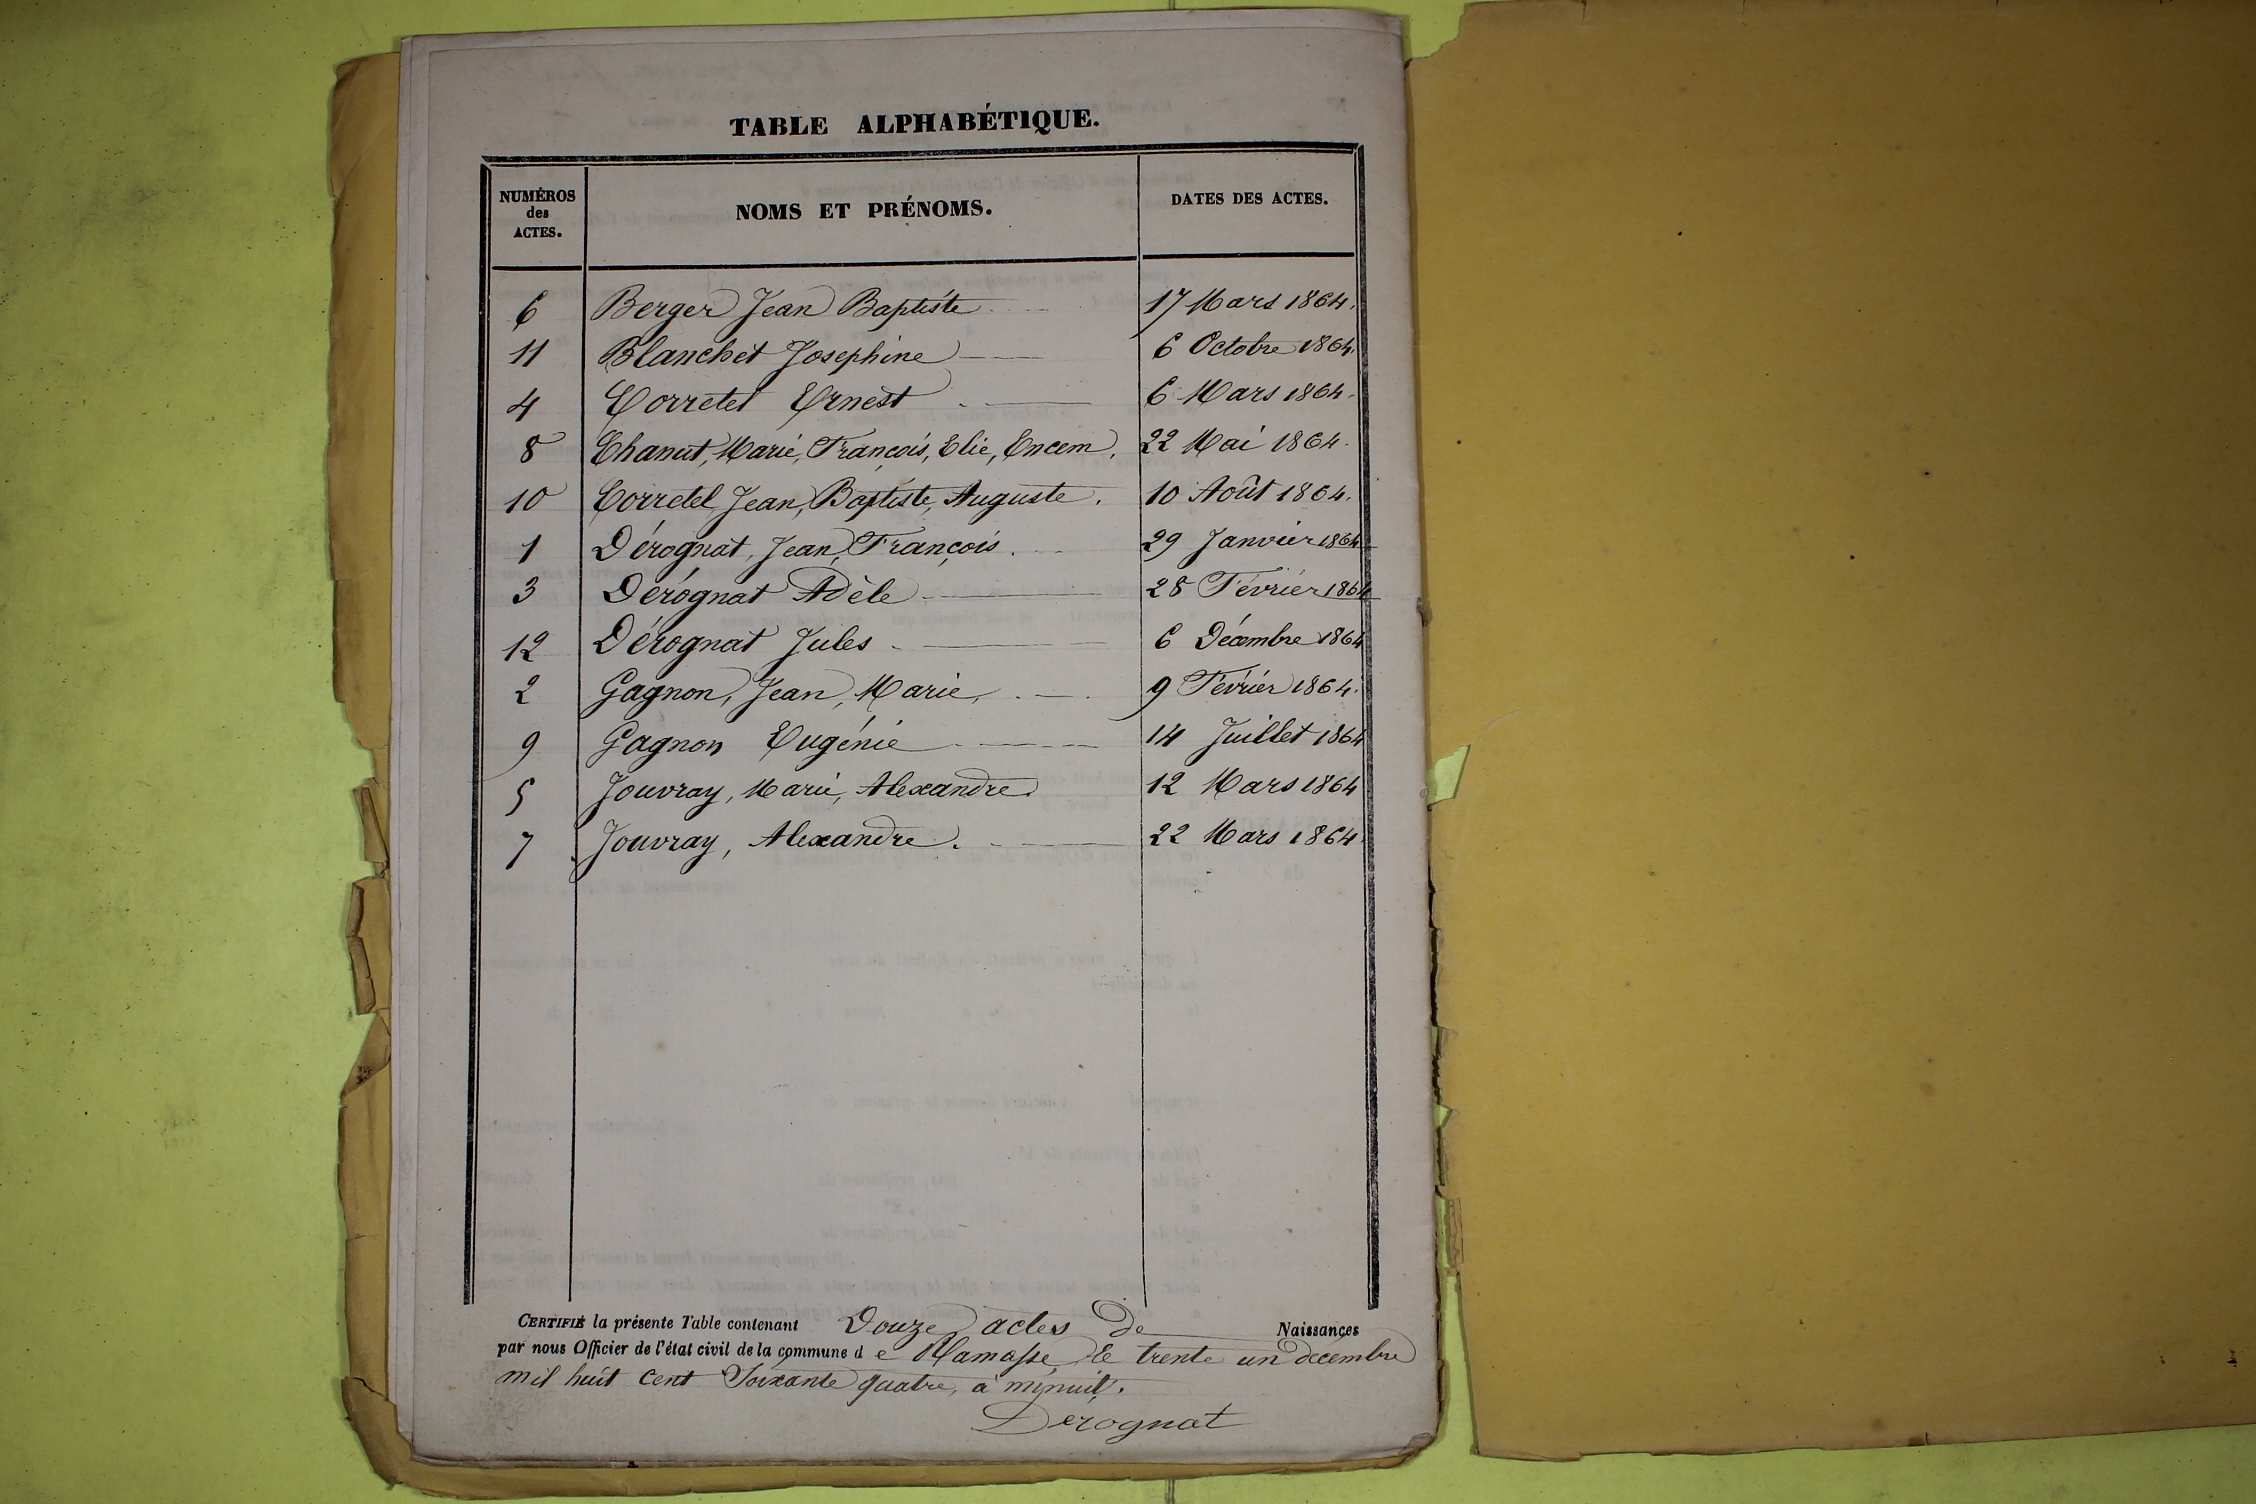 TABLE ALPHABÉTIQUE.
NUMÉROS des ACTES. NOMS ET PRÉNOMS. DATES DES ACTES.
6 Berger Jean Baptiste 17 Mars 1864.
11 Blanchet Josephine 6 Octobre 1864.
4 Corretel Ernest 6 Mars 1864.
8 Chanut, Marie, François, Elie, Encem. 22 Mai 1864.
10 Corretel Jean, Baptiste, Auguste. 10 Août 1864.
1 Dérognat, Jean, François. 29 Janvier 1864
3 Dérognat Adèle 28 Février 1864
12 Dérognat Jules 6 Décembre 1864
2 Gagnon, Jean, Marie, 9 Février 1864.
9 Gagnon Eugénie 14 Juillet 1864
5 Jouvray, Marie, Alexandre. 12 Mars 1864
7 Jouvray, Alexandre. 22 Mars 1864.
CERTIFIÉ la présente Table contenant Douze actes de Naissances
par nous Officier de l'état civil de la commune de Ramasse, le trente un décembre
mil huit cent Soixante quatre, à minuit.
Derognat